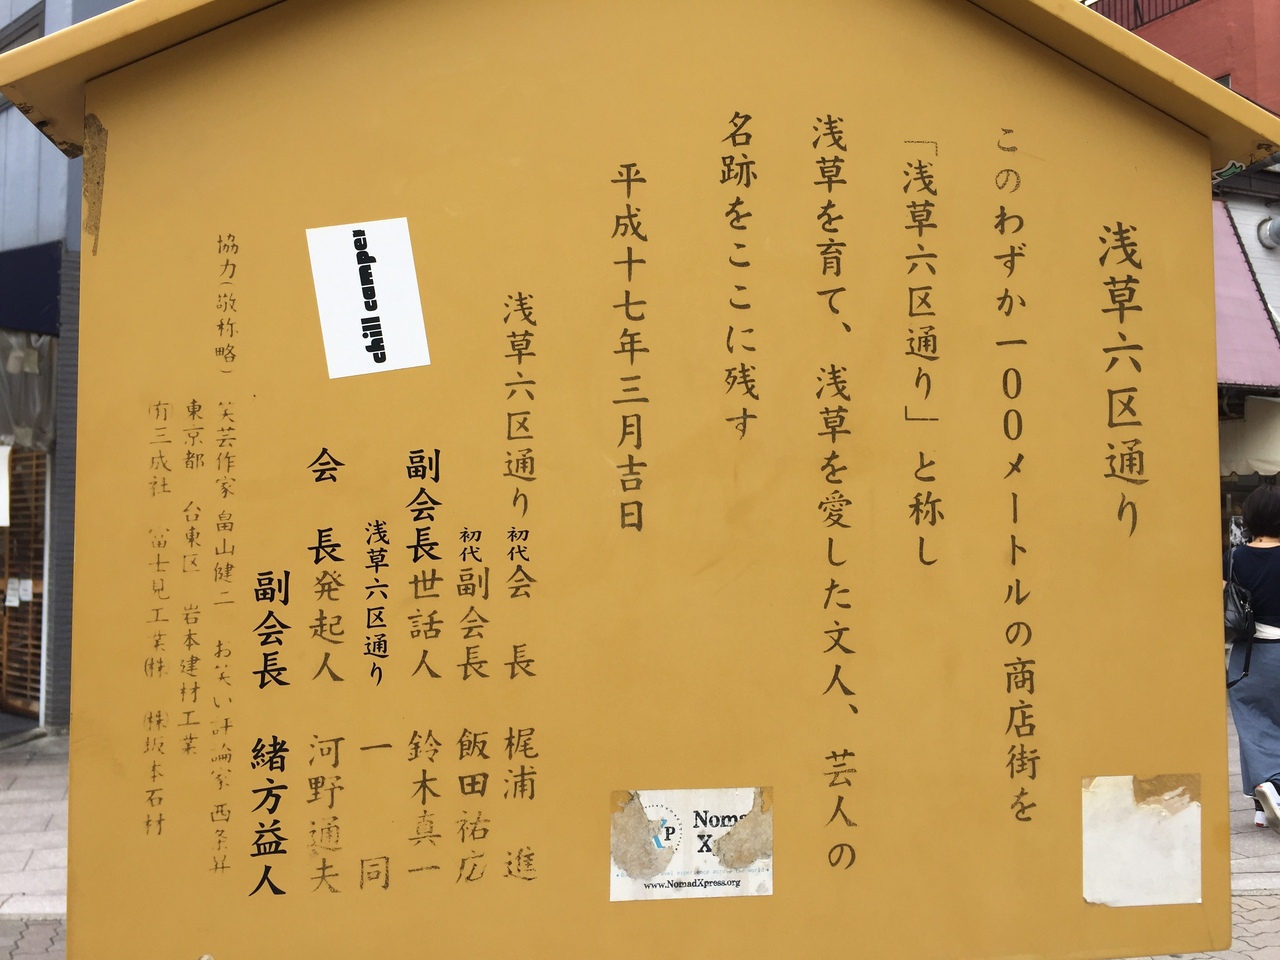 浅草六区通り
このわずか一00メートルの商店街を
「浅草六区通り」と称し
浅草を育て、浅草を愛した文人、芸人の
名跡をここに残す
平成十七年三月吉日
浅草六区通り 初代会 長 梶浦 進
初代副会長 飯田祐広
副会長世話人 鈴木真一
浅草六区通り 一 同
会 長発起人 河野通夫
副会長 緒方益人
協力(敬称略) 笑芸作家 畠山健二 お笑い評論家 西条昇
東京都 台東区 岩本建材工業
㈲三成社 冨士見工業㈱ ㈱坂本石材
chill camper
XP
www.NomadXpress.org